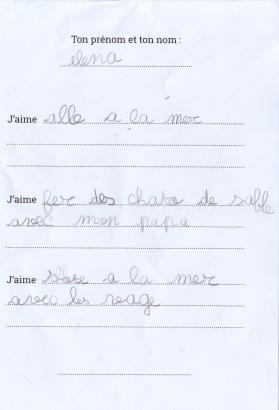 Ton prénom et ton nom :
elena
J'aime alle a la mer
J'aime fer des chato de sable
avec mon papa
J'aime a la mer
avec les